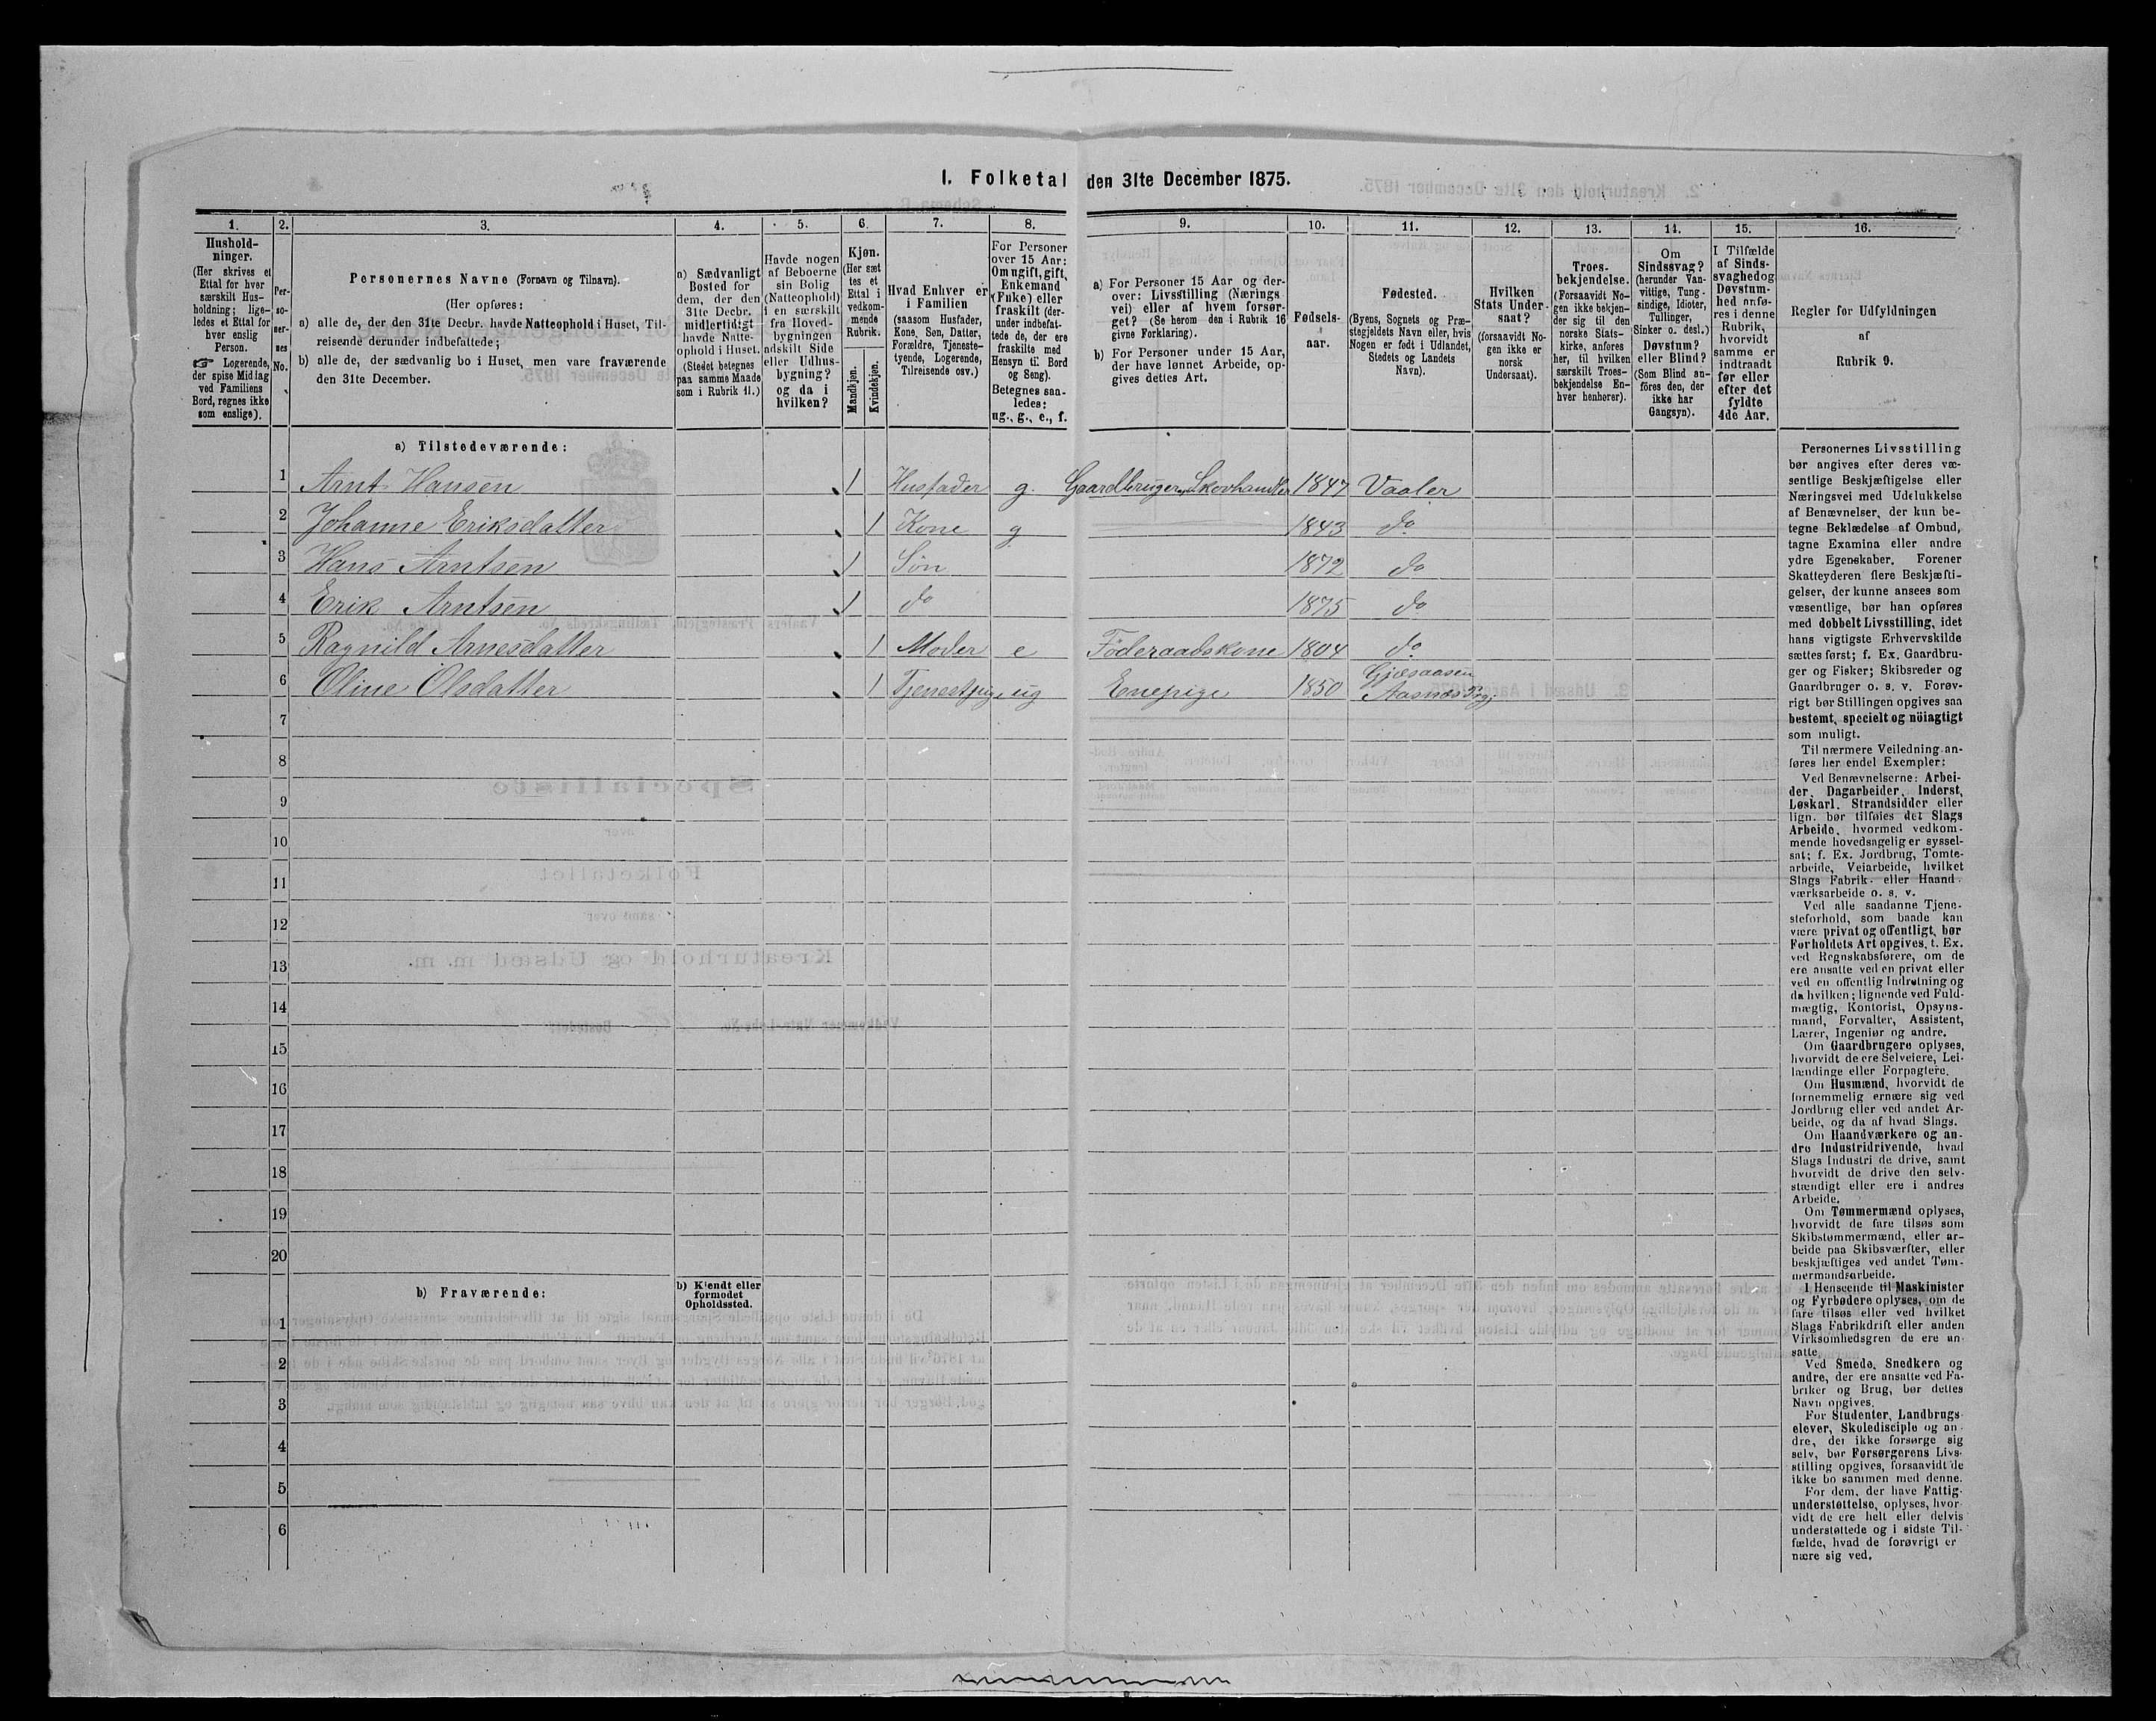 I. Folketal den 31te December 1875.
1.
Hushold-
ninger.
(Her skrives et
Ettal for hver
særskilt Hus-
holdning; lige-
ledes et Ettal for
hver enslig
Person.
☞ Logerende,
der spise Middag
ved Familiens
Bord, regnes ikke
som enslige).
2.
Per-
so-
ner-
nes
No.
3.
Personernes Navne (Fornavn og Tilnavn).
(Her opføres:
a) alle de, der den 31te Decbr. havde Natteophold i Huset, Til-
reisende derunder indbefattede;
b) alle de, der sædvanlig bo i Huset, men vare fraværende
den 31te December.
4.
a) Sædvanligt
Bosted for
dem, der den
31te Decbr.
midlertidigt
havde Natte-
ophold i Huset.
(Stedet betegnes
paa samme Maade
som i Rubrik 11.)
5.
Havde nogen
af Beboerne
sin Bolig
(Natteophold)
i en særskilt
fra Hoved-
bygningen
adskilt Side
eller Udhus-
bygning?
og da i
hvilken?
6.
Kjøn.
(Her sæt
tes et
Ettal i
vedkom-
mende
Rubrik.
Mandkjøn.
Kvindekjøn.
7.
Hvad Enhver er
i Familien
(saasom Husfader,
Kone, Søn, Datter,
Forældre, Tjeneste-
tyende, Logerende,
Tilreisende osv.)
8.
For Personer
over 15 Aar:
Om ugift, gift,
Enkemand
(Enke) eller
fraskilt (der-
under indbefat-
tede de, der ere
fraskilte med
Hensyn til Bord
og Seng).
Betegnes saa-
ledes:
ug., g., e., f.
9.
a) For Personer 15 Aar og der-
over: Livsstilling (Nærings
vei) eller af hvem forsør-
get? (Se herom den i Rubrik 16
givne Forklaring).
b) For Personer under 15 Aar,
der have lønnet Arbeide, op-
gives dettes Art.
10.
Fødsels-
aar.
11.
Fødested.
(Byens, Sognets og Præ-
stegjeldets Navn eller, hvis
Nogen er født i Udlandet,
Stedets og Landets
Navn).
12.
Hvilken
Stats Under-
saat?
(forsaavidt No-
gen ikke er
norsk
Undersaat).
13.
Troes-
bekjendelse.
(Forsaavidt No-
gen ikke bekjen-
der sig til den
norske Stats-
kirke, anføres
her, til hvilken
særskilt Troes-
bekjendelse En-
hver henhører).
14.
Om
Sindssvag?
(herunder Van-
vittige, Tung-
sindige, Idioter,
Tullinger,
Sinker o. desl.)
Døvstum?
eller Blind?
(Som Blind an-
føres den, der
ikke har
Gangsyn).
15.
I Tilfælde
af Sinds-
svaghed og
Døvstum-
hed anfø-
res i denne
Rubrik,
hvorvidt
samme er
indtraadt
før eller
efter det
fyldte
4de Aar.
16.
Regler for Udfyldningen
af
Rubrik 9.
a) Tilstedeværende:
1 Arnt Hansen 1 Husfader g. Gaardbruger Skovhandler 1847 Vaaler
2 Johanne Eriksdatter 1 Kone g 1843 do
3 Hans Arntsen 1 Søn 1872 do
4 Erik Arntsen 1 do 1875 do
5 Ragnild Arnesdatter 1 Moder e Föderaadskone 1804 do
6 Oline Olsdatter 1 Tjenestpige ug Enepige 1850 Gjæsaasen
Aasnæs Prgj
7
8
9
10
11
12
13
14
15
16
17
18
19
20
b) Fraværende:
b) Kjendt eller
formodet
Opholdssted.
1
2
3
4
5
6
Personernes Livsstilling
bør angives efter deres væ-
sentlige Beskjæftigelse eller
Næringsvei med Udelukkelse
af Benævnelser, der kun be-
tegne Beklædelse af Ombud,
tagne Examina eller andre
ydre Egenskaber. Forener
Skatteyderen flere Beskjæfti-
gelser, der kunne ansees som
væsentlige, bør han opføres
med dobbelt Livsstilling, idet
hans vigtigste Erhvervskilde
sættes først; f. Ex. Gaardbru-
ger og Fisker; Skibsreder og
Gaardbruger o. s. v. Forøv-
rigt bør Stillingen opgives saa
bestemt, specielt og nöiagtigt
som muligt.
Til nærmere Veiledning an-
føres her endel Exempler:
Ved Benævnelserne: Arbei-
der, Dagarbeider, Inderst,
Løskarl, Strandsidder eller
lign. bør tilføies det Slags
Arbeide, hvormed vedkom-
mende hovedsagelig er syssel-
sat; f. Ex. Jordbrug, Tomte-
arbeide, Veiarbeide, hvilket
Slags Fabrik- eller Haand-
værksarbeide o. s. v.
Ved alle saadanne Tjene-
steforhold, som baade kan
være privat og offentligt, bør
Forholdets Art opgives, t. Ex.
ved Regnskabsførere, om de
ere ansatte ved en privat eller
ved en offentlig Indretning og
da hvilken; lignende ved Fuld-
mægtig, Kontorist, Opsyns-
mand, Forvalter, Assistent,
Lærer, Ingeniør og andre.
Om Gaardbrugere oplyses,
hvorvidt de ere Selveiere, Lei-
lændinge eller Forpagtere.
Om Husmænd, hvorvidt de
fornemmelig ernære sig ved
Jordbrug eller ved andet Ar-
beide, og da af hvad Slags.
Om Haandværkere og an-
dre Industridrivende, hvad
Slags Industri de drive, samt
hvorvidt de drive den selv-
stændigt eller ere i andres
Arbeide.
Om Tømmermænd oplyses,
hvorvidt de fare tilsøs som
Skibstømmermænd, eller ar-
beide paa Skibsværfter, eller
beskjæftiges ved andet Tøm-
mermandsarbeide.
I Henseende til Maskinister
og Fyrbødere oplyses, om de
fare tilsøs eller ved hvilket
Slags Fabrikdrift eller anden
Virksomhedsgren de ere an-
satte.
Ved Smede, Snedkere og
andre, der ere ansatte ved Fa-
briker og Brug, bør dettes
Navn opgives.
For Studenter, Landbrugs-
elever, Skoledisciple og an-
dre, der ikke forsørge sig
selv, bør Forsørgerens Livs-
stilling opgives, forsaavidt de
ikke bo sammen med denne.
For dem, der have Fattig-
understøttelse, oplyses, hvor-
vidt de ere helt eller delvis
understøttede og i sidste Til-
fælde, hvad de forøvrigt er
nære sig ved.